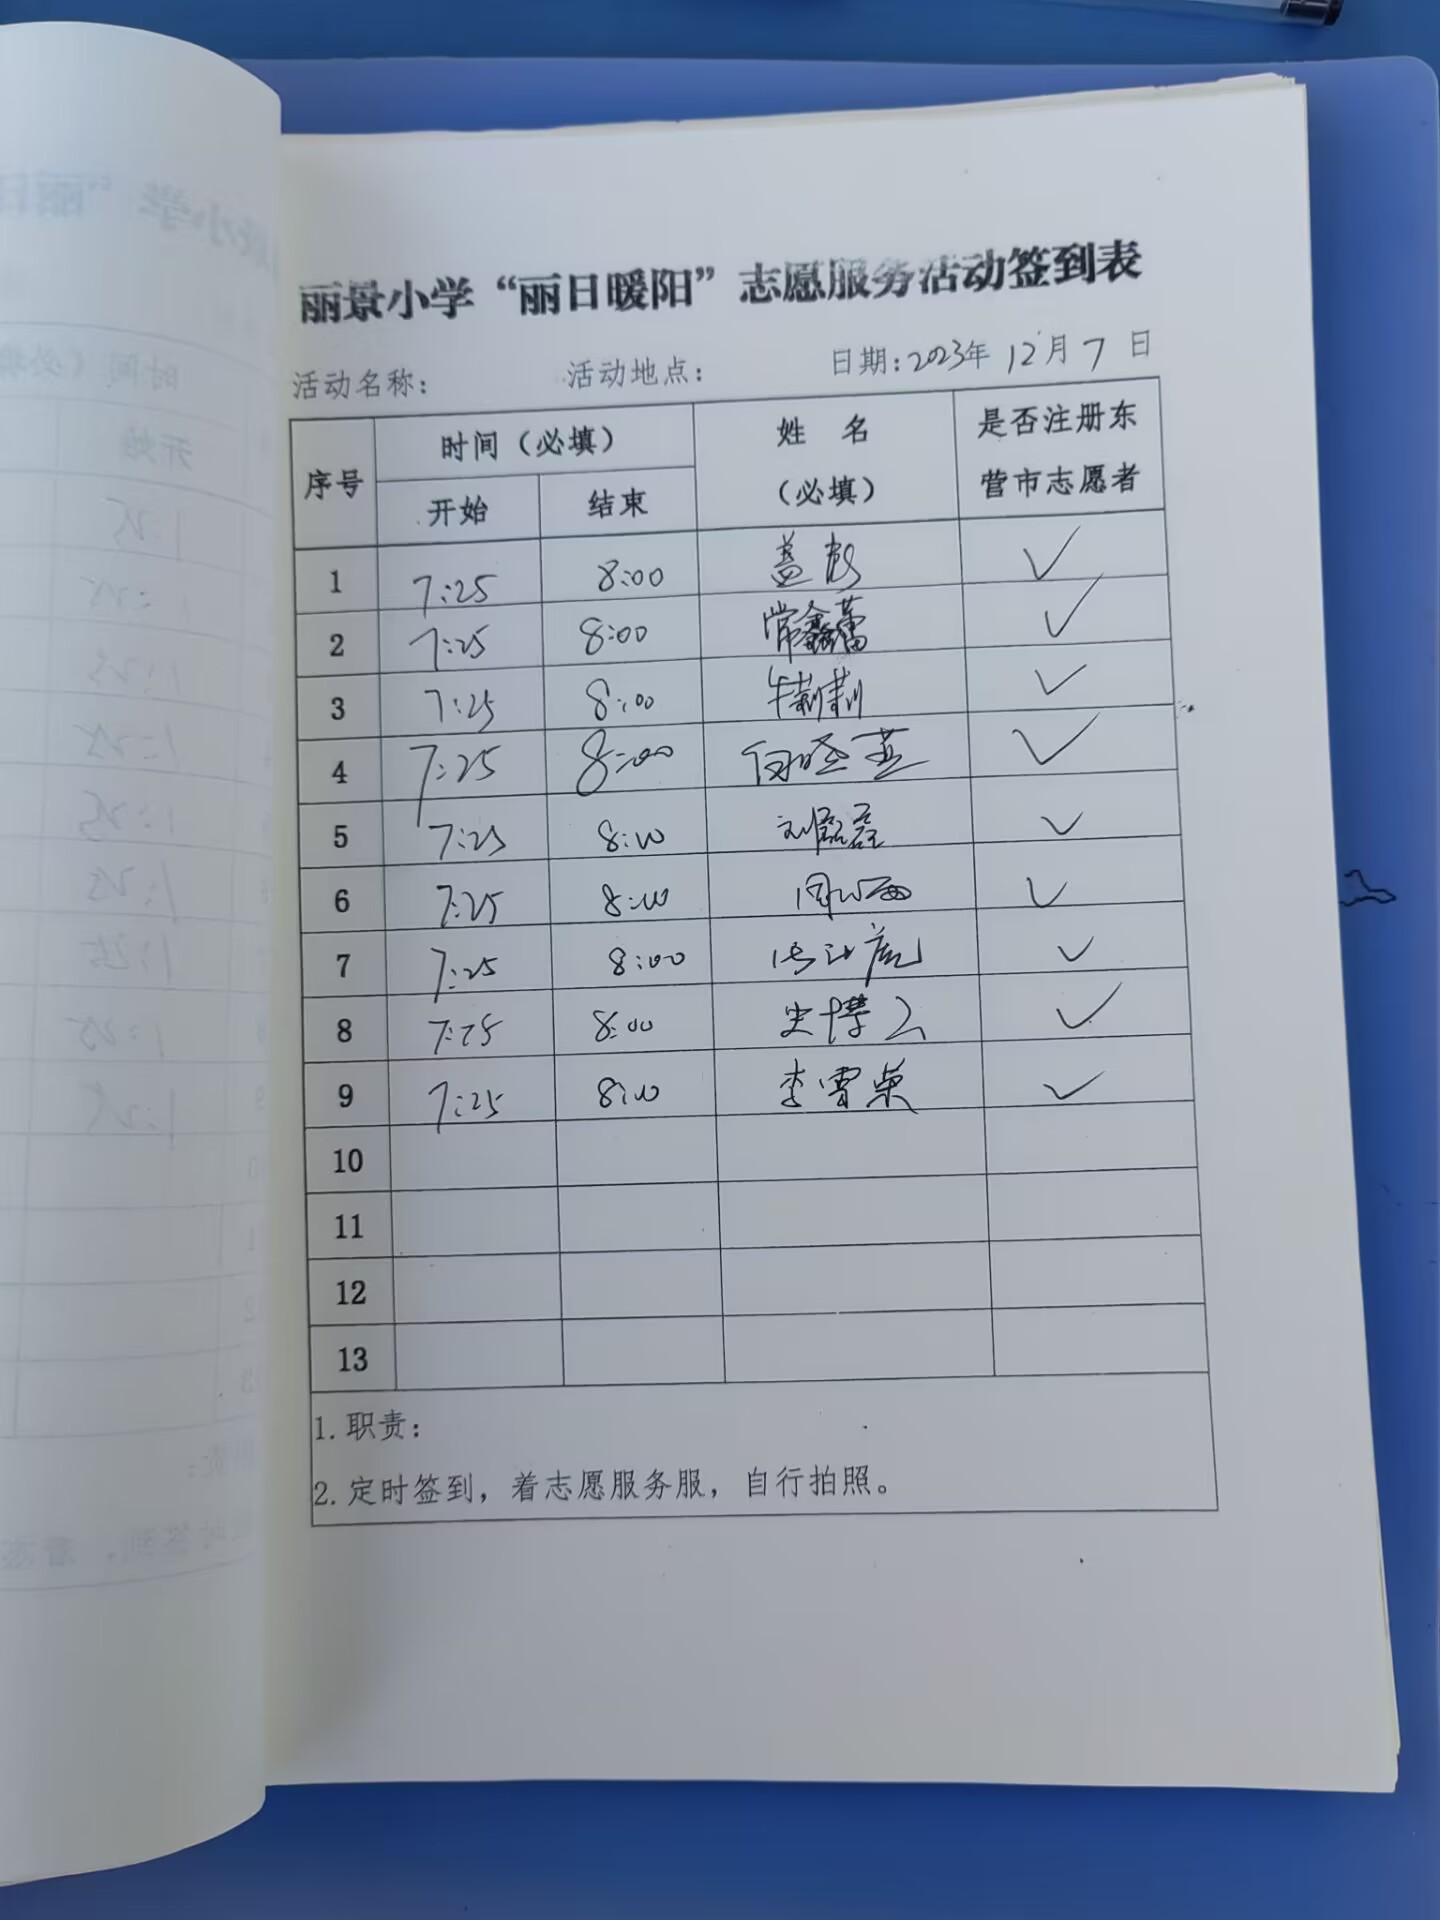 丽景小学“丽日暖阳”志愿服务活动签到表
活动名称： 活动地点： 日期：2023年 12月 7 日
序号 时间（必填） 姓 名（必填） 是否注册东营市志愿者
开始 结束
1 7:25 8:00 盖 ✓
2 7:25 8:00 常鑫蕾 ✓
3 7:25 8:00 牛莉莉 ✓
4 7:25 8:00 向晓燕 ✓
5 7:25 8:00 刘磊磊 ✓
6 7:25 8:00 ✓
7 7:25 8:00 ✓
8 7:25 8:00 史博 ✓
9 7:25 8:00 李雪荣 ✓
10
11
12
13
1.职责：
2.定时签到，着志愿服务服，自行拍照。